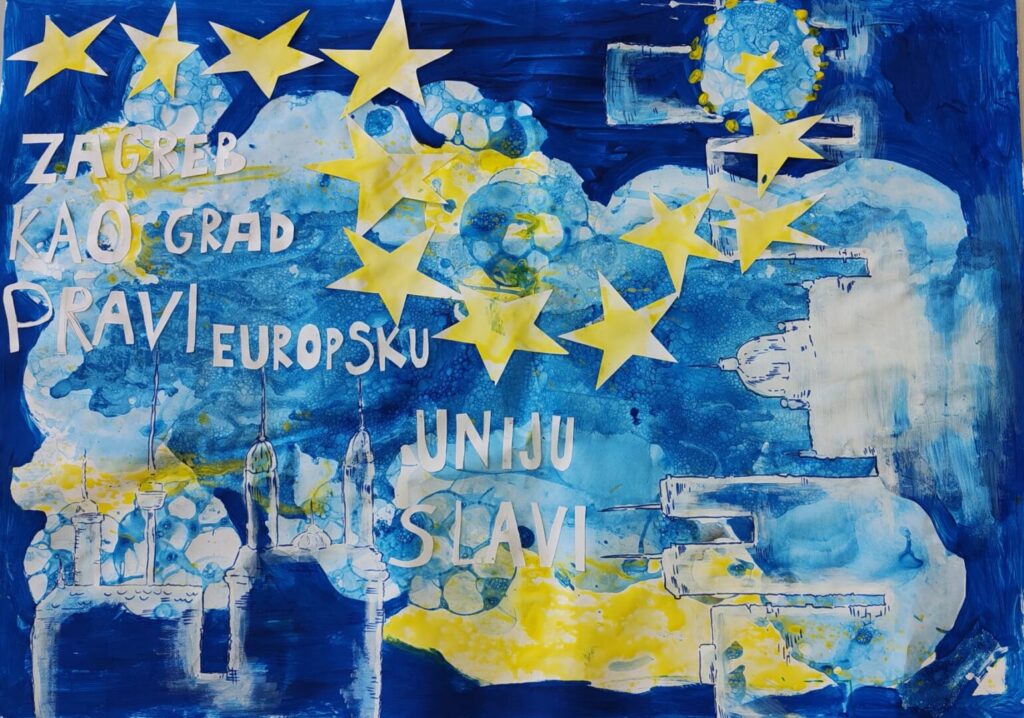 ZAGREB
KAO GRAD
PRAVI EUROPSKU
UNIJU
SLAVI